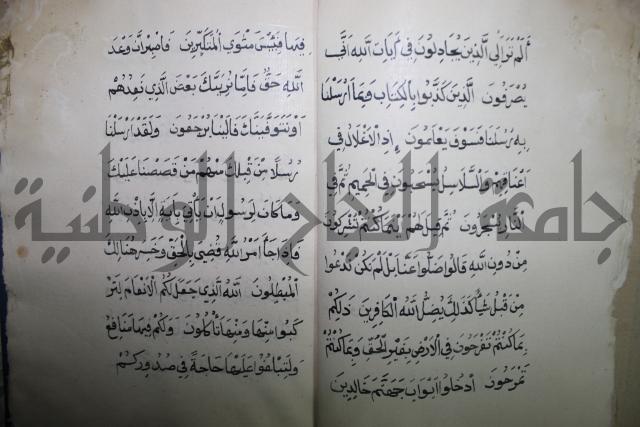 ألم تر إلى الذين يجادلون في آيات الله أنى
يصرفون الذين كذبوا بالكتاب وبما أرسلنا
به رسلنا فسوف يعلمون إذ الأغلال في
أعناقهم والسلاسل يسحبون في الحميم ثم في
النار يسجرون ثم قيل لهم أينما كنتم تشركون
من دون الله قالوا ضلوا عنا بل لم نكن ندعوا
من قبل شيأ كذلك يضل الله الكافرين ذلكم
بما كنتم تفرحون في الأرض بغير الحق وبما كنتم
تمرحون ادخلوا أبواب جهنم خالدين
فيها فبئس مثوى المتكبرين فاصبر إن وعد
الله حق فإما نرينك بعض الذي نعدهم
أو نتوفينك فإلينا يرجعون ولقد أرسلنا
رسلا من قبلك منهم من قصصنا عليك
وما كان لرسول أن يأتي بآية إلا بإذن الله
فإذا جاء أمر الله قضي بالحق وخسر هنالك
المبطلون الله الذي جعل لكم الأنعام لتر
كبوا منها ومنها تأكلون ولكم فيها منافع
ولتبلغوا عليها حاجة في صدوركم
جامعة النجاح الوطنية